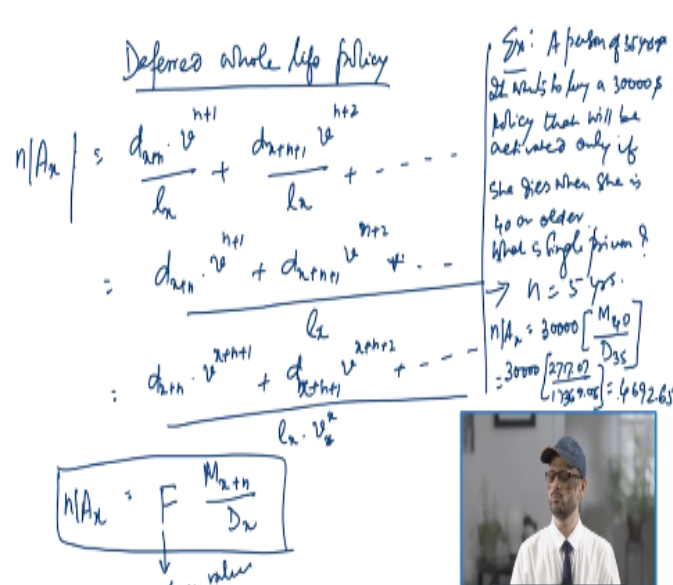 Deferred whole life policy
n|Aₓ = dₓ₊ₙ · vⁿ⁺¹ / lₓ + dₓ₊ₙ₊₁ vⁿ⁺² / lₓ + - - - -
= dₓ₊ₙ · vⁿ⁺¹ + dₓ₊ₙ₊₁ vⁿ⁺² + - - / lₓ
= dₓ₊ₙ · vˣ⁺ⁿ⁺¹ + dₓ₊ₙ₊₁ vˣ⁺ⁿ⁺² + - - - - / lₓ · vˣ
n|Aₓ = F Mₓ₊ₙ / Dₓ
value
Ex: A person of 35
wants to buy a 30000$
policy that will be
activated only if
she dies when she is
40 or older.
What is single ?
→ n = 5 yrs.
n|Aₓ = 30000 [M₄₀ / D₃₅]
= 30000 [ ] = 4692.65